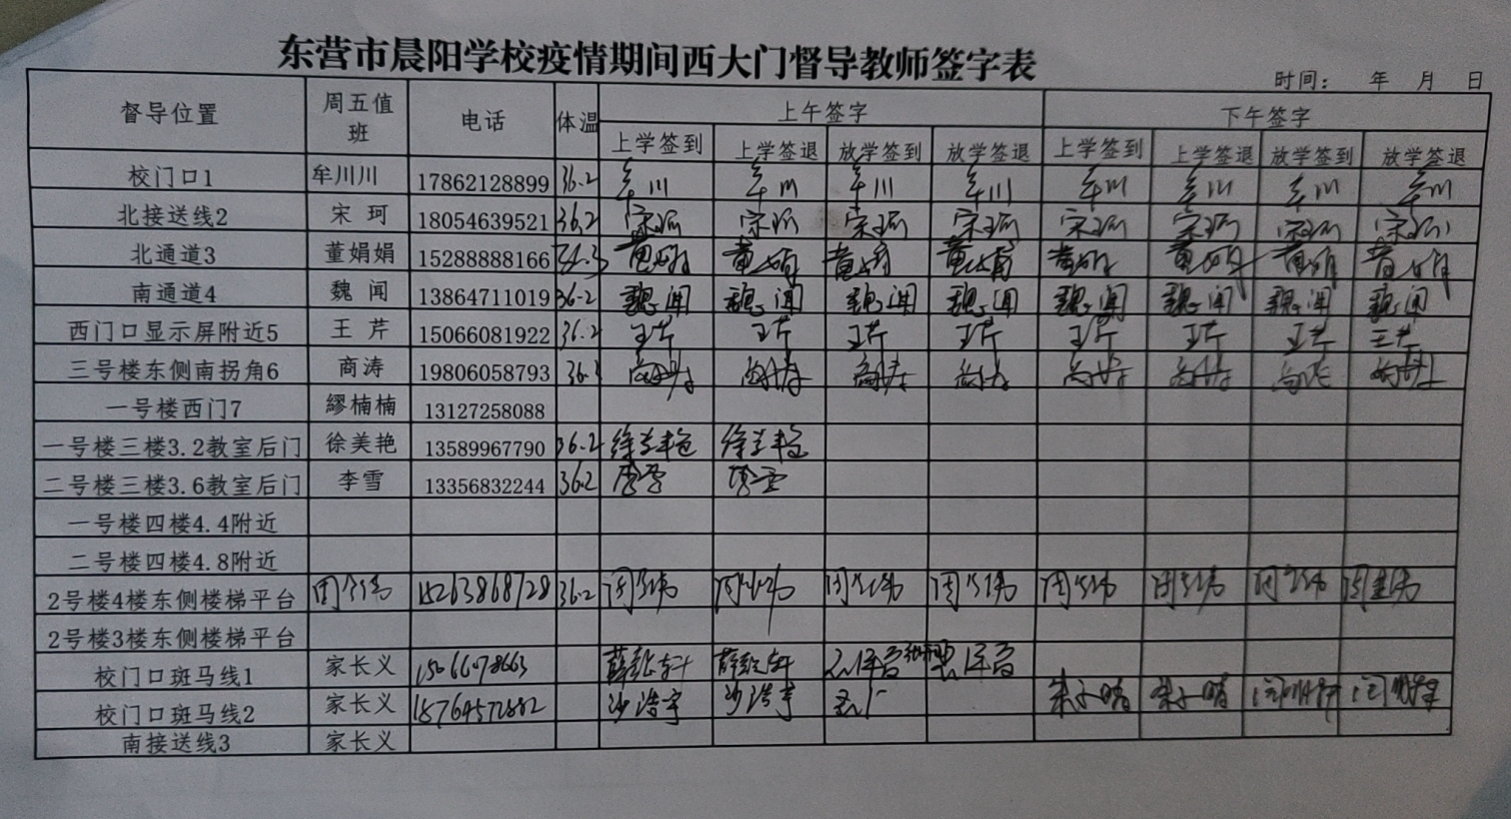 东营市晨阳学校疫情期间西大门督导教师签字表
时间： 年 月 日
督导位置 周五值班 电话 体温 上午签字 下午签字
上学签到 上学签退 放学签到 放学签退 上学签到 上学签退 放学签到 放学签退
校门口1 牟川川 17862128899 36.2 牟川 牟川 牟川 牟川 牟川 牟川 牟川 牟川
北接送线2 宋珂 18054639521 36.2 宋珂 宋珂 宋珂 宋珂 宋珂 宋珂 宋珂 宋珂
北通道3 董娟娟 15288888166 董娟 董娟 董娟 董娟 董娟 董娟 董娟 董娟
南通道4 魏闻 13864711019 36.2 魏闻 魏闻 魏闻 魏闻 魏闻 魏闻 魏闻 魏闻
西门口显示屏附近5 王芹 15066081922 36.2 王芹 王芹 王芹 王芹 王芹 王芹 王芹 王芹
三号楼东侧南拐角6 商涛 19806058793 商涛 商涛 商涛 商涛 商涛 商涛 商涛 商涛
一号楼西门7 繆楠楠 13127258088
一号楼三楼3.2教室后门 徐美艳 13589967790 36.2 徐美艳 徐美艳
二号楼三楼3.6教室后门 李雪 13356832244 36.2 李雪 李雪
一号楼四楼4.4附近
二号楼四楼4.8附近
2号楼4楼东侧楼梯平台 18263868728 36.2
2号楼3楼东侧楼梯平台
校门口斑马线1 家长义 15066078663
校门口斑马线2 家长义 18764572882 沙浩宇 沙浩宇
南接送线3 家长义